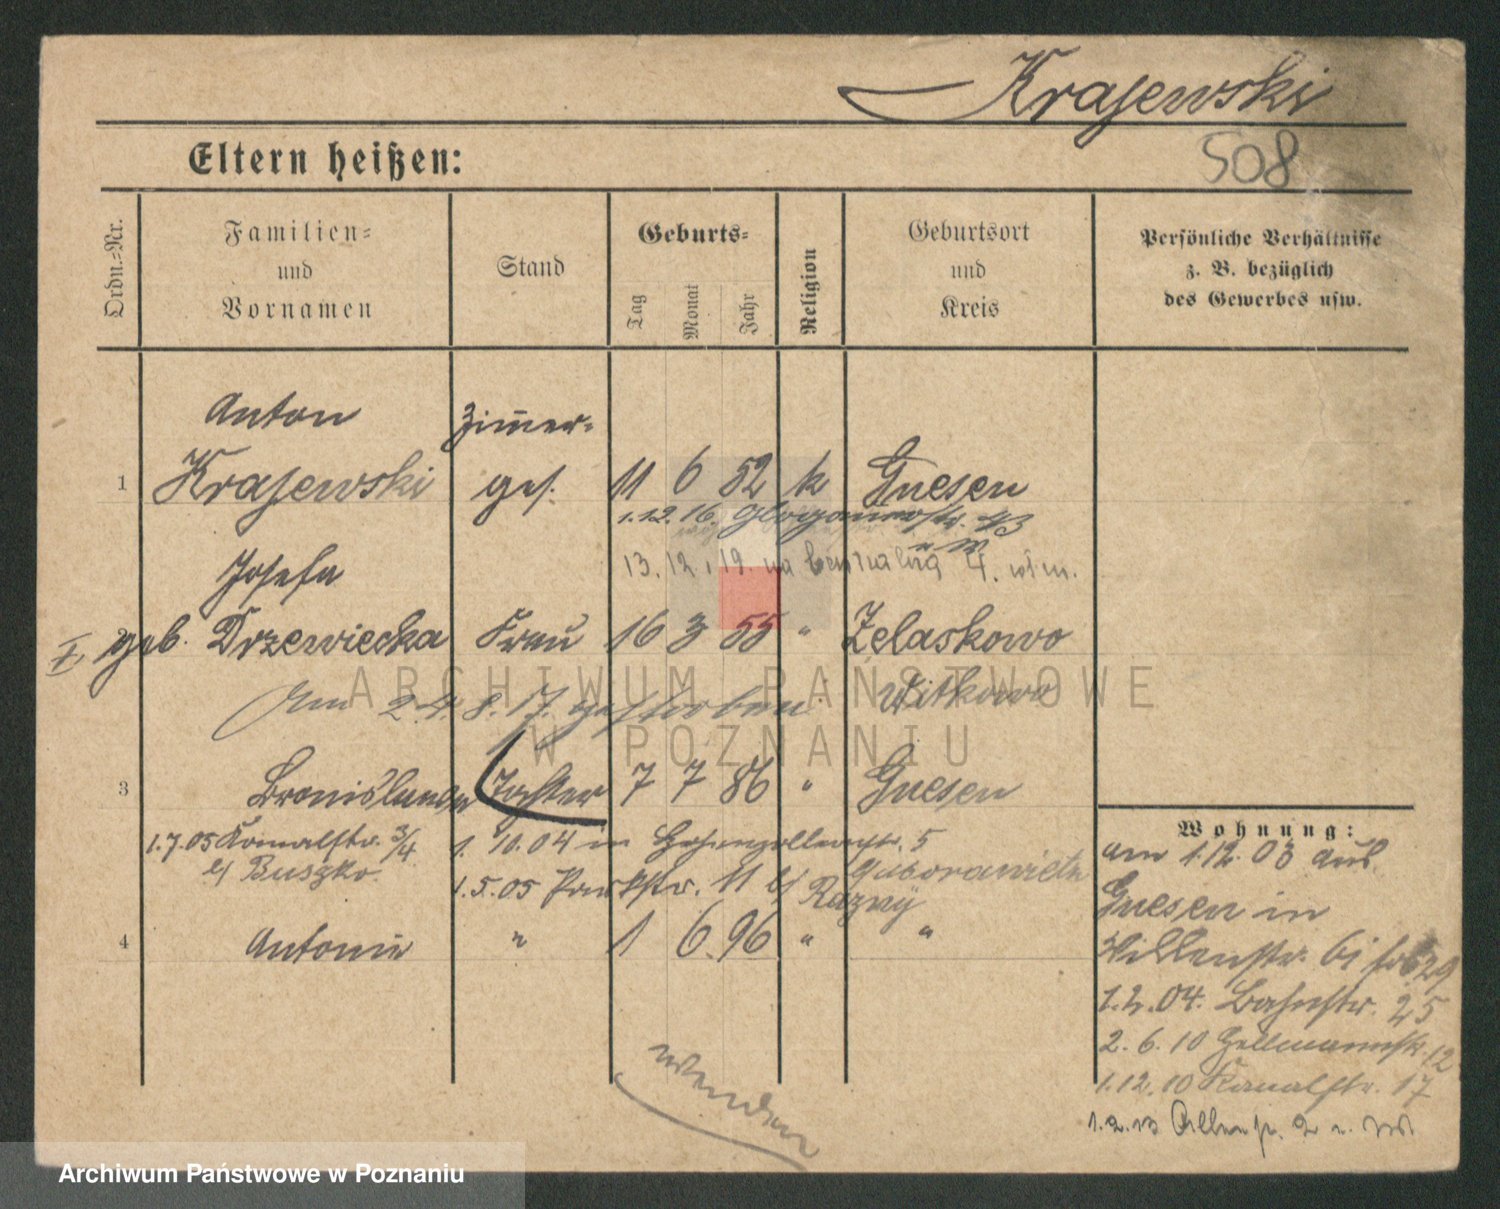 Krajewski
508
Eltern heißen:
Ordn.-Nr.
Familien- und Vornamen
Stand
Geburts-
Tag
Monat
Jahr
Religion
Geburtsort und Kreis
Persönliche Verhältnisse z. B. bezüglich des Gewerbes usw.
Anton Zimer-
1 Krajewski ges. 11 6 52 k Gnesen
1.12.16. Glogauerstr.
13.12.19. na 4.
Josefa
I geb. Drzewiecka Frau 16 3 55 " Zelaskowo
Am 24.8.17. gestorben Witkowo
ARCHIWUM PAŃSTWOWE
W POZNANIU
3 Bronislawa Tochter 7 7 86 " Gnesen
Wohnung:
1.7.05 Kanalstr. 3/4 1. 10.04 in Hohenzollernstr. 5
b/ Buszko. 1.5.05 Parkstr. 11 b/ Razny
4 Antonie " 1 6. 96 " "
am 1.12.03 aus
Gnesen in
1.2.04. Bahnstr. 25
2.6.10 12
1.12.10 Kanalstr. 17
1.2.13 2
wenden
Archiwum Państwowe w Poznaniu